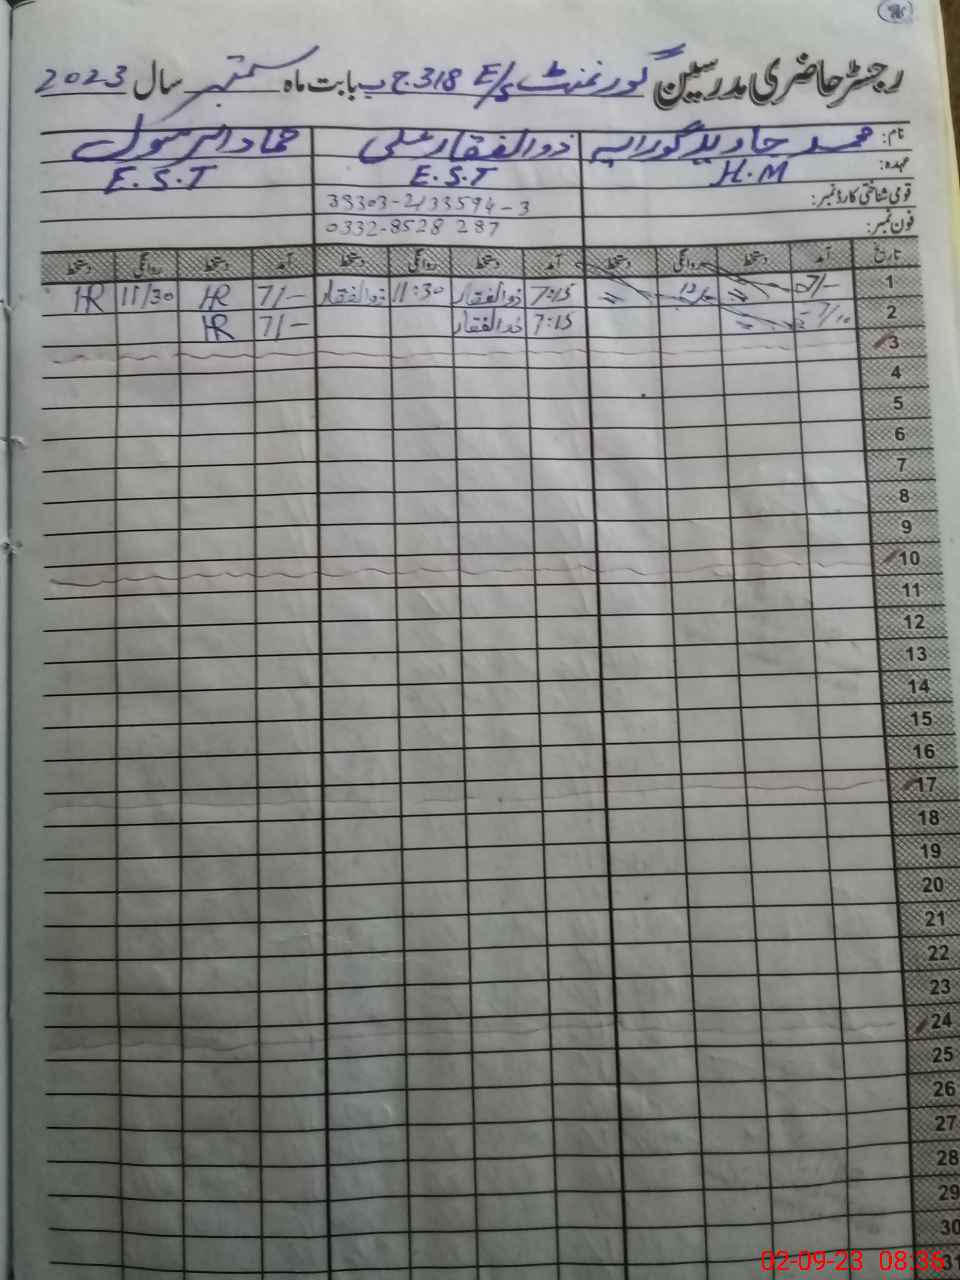 رجسٹر حاضری مدرسین گورنمنٹ E/S 318 ج ب بابت ماہ ستمبر سال 2023
نام: محمد جاوید گورایہ ذوالفقار علی حماد الرسول
عہدہ: H.M E.S.T E.S.T
قومی شناختی کارڈ نمبر: 33303-2133594-3
فون نمبر: 0332-8528 287
تاریخ آمد دستخط روانگی دستخط آمد دستخط روانگی دستخط آمد دستخط روانگی دستخط
1 7/- 7:15 ذوالفقار 11:30 ذوالفقار 7/- HR 11/30 HR
2 7/10 7:15 ذوالفقار 7/- HR
3
4
5
6
7
8
9
10
11
12
13
14
15
16
17
18
19
20
21
22
23
24
25
26
27
28
29
30
31
02-09-23 08:36